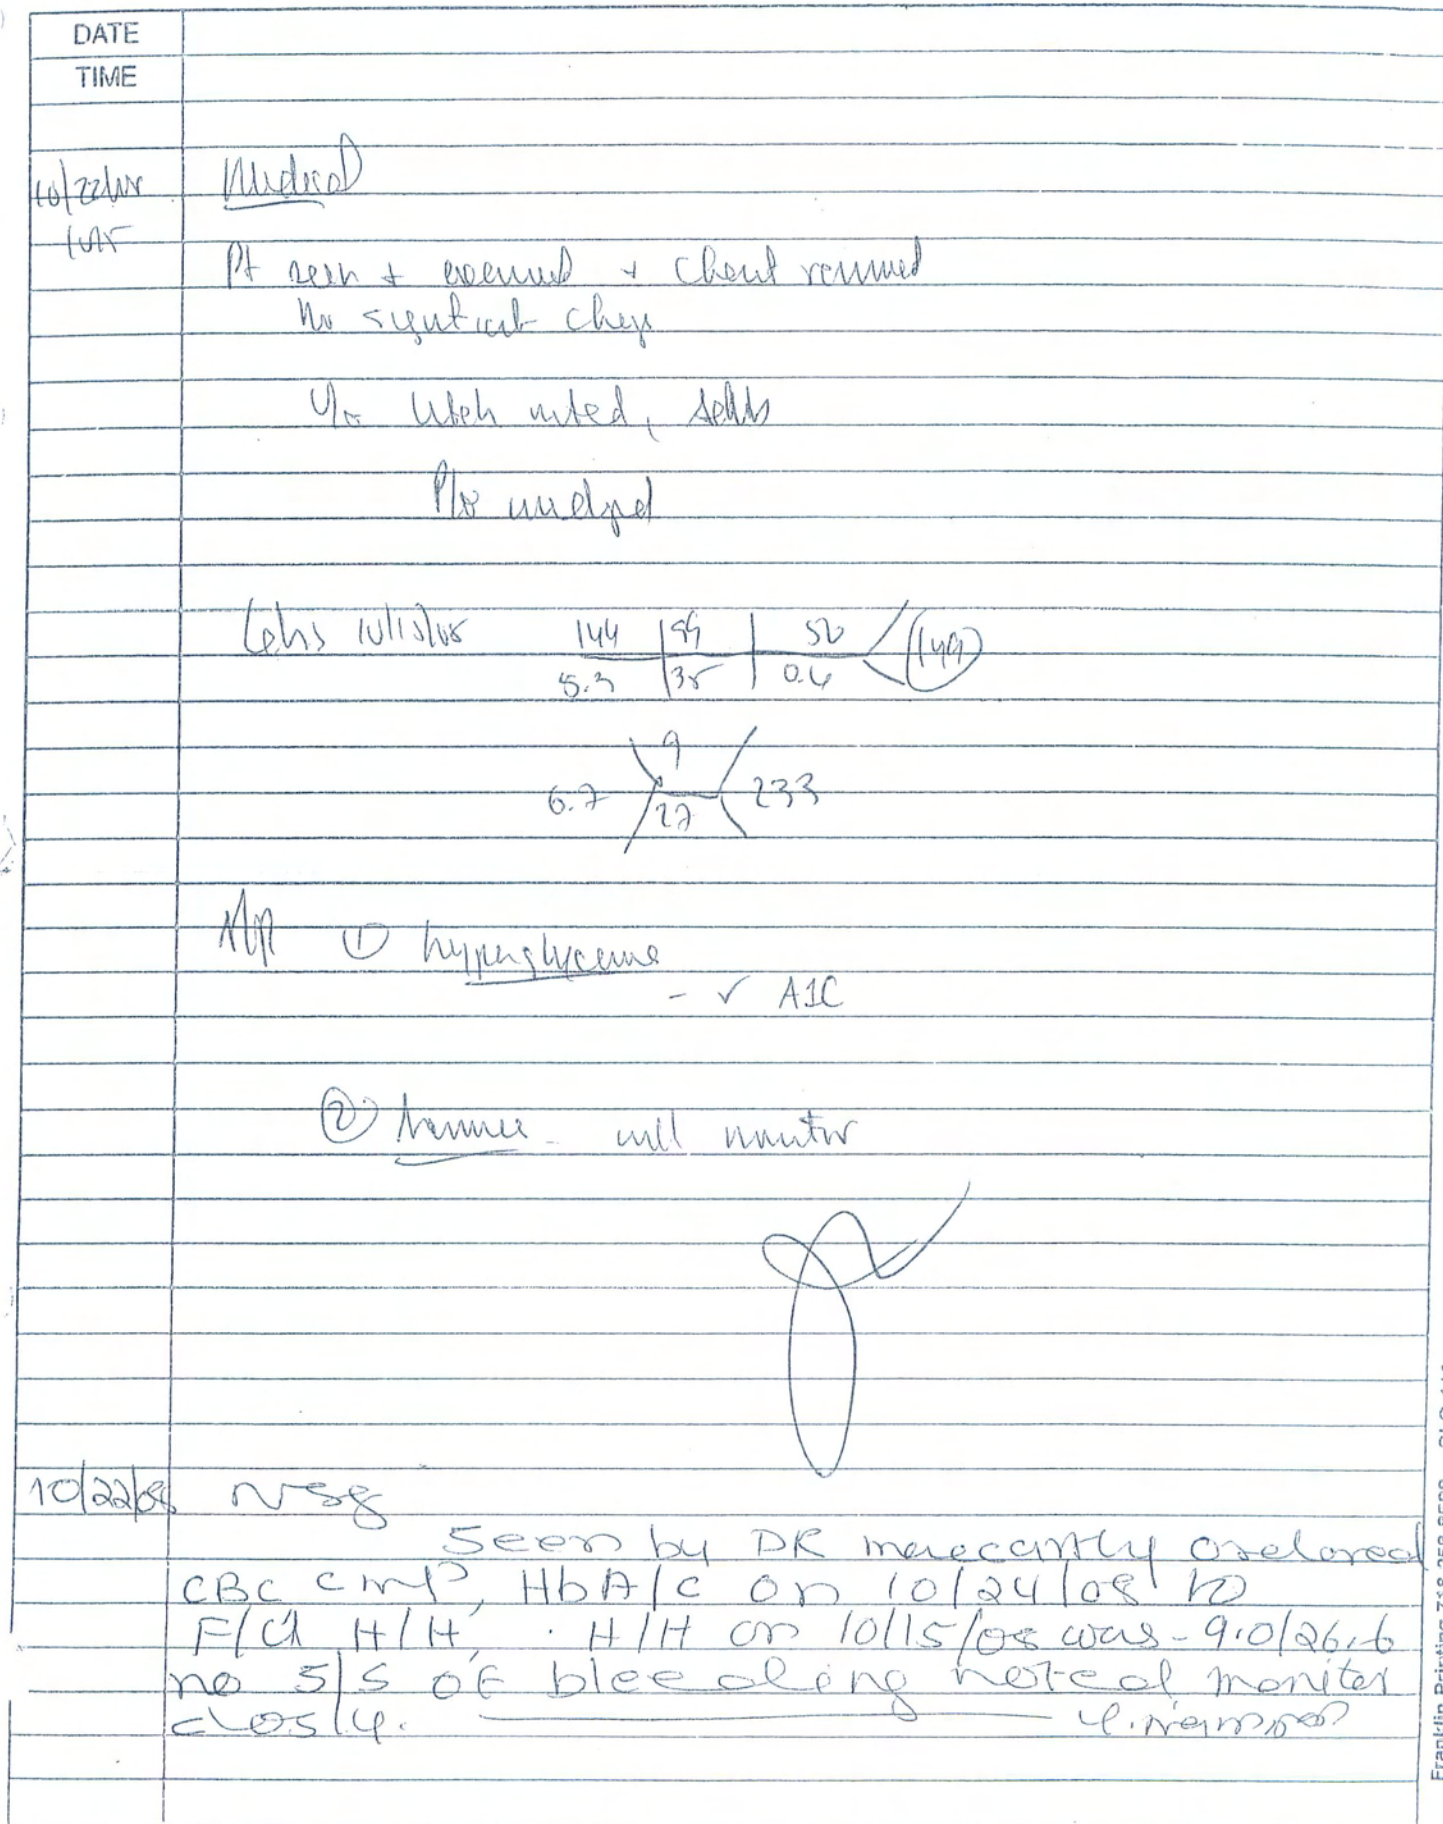 DATE
TIME
10/22/08
Medical
Pt seen + examined + chart reviewed
No significant change
V/S noted, stable
P/E unchanged
Labs 10/15/08 144 99 50 149
5.3 35 0.6
9
6.7 233
27
A/P ① hyperglycemia
- ✓ A1C
② Anemia - will monitor
10/22/08 NSG
Seen by DR ordered
CBC CMP, HbA1C on 10/24/08 to
F/U H/H, H/H on 10/15/08 was - 9.0/26.6
no S/S of bleeding noted monitor
closly.
Franklin Printing